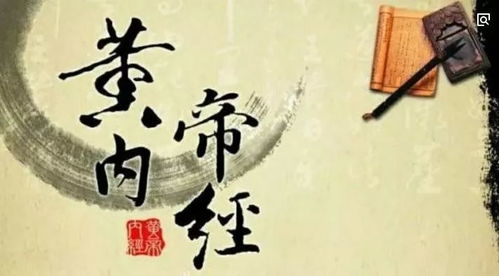 黄帝
内經
黄帝
内經